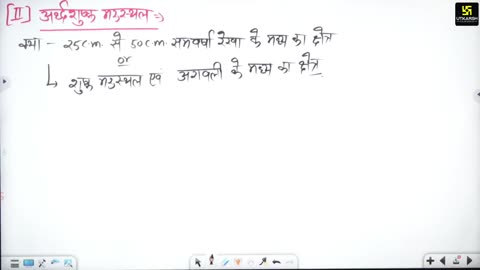 [II] अर्धशुष्क मरुस्थल ⇒
UTKARSH
वर्षा - 25cm से 50cm समवर्षा रेखा के मध्य का क्षेत्र
or
↳ शुष्क मरुस्थल एवं अरावली के मध्य का क्षेत्र